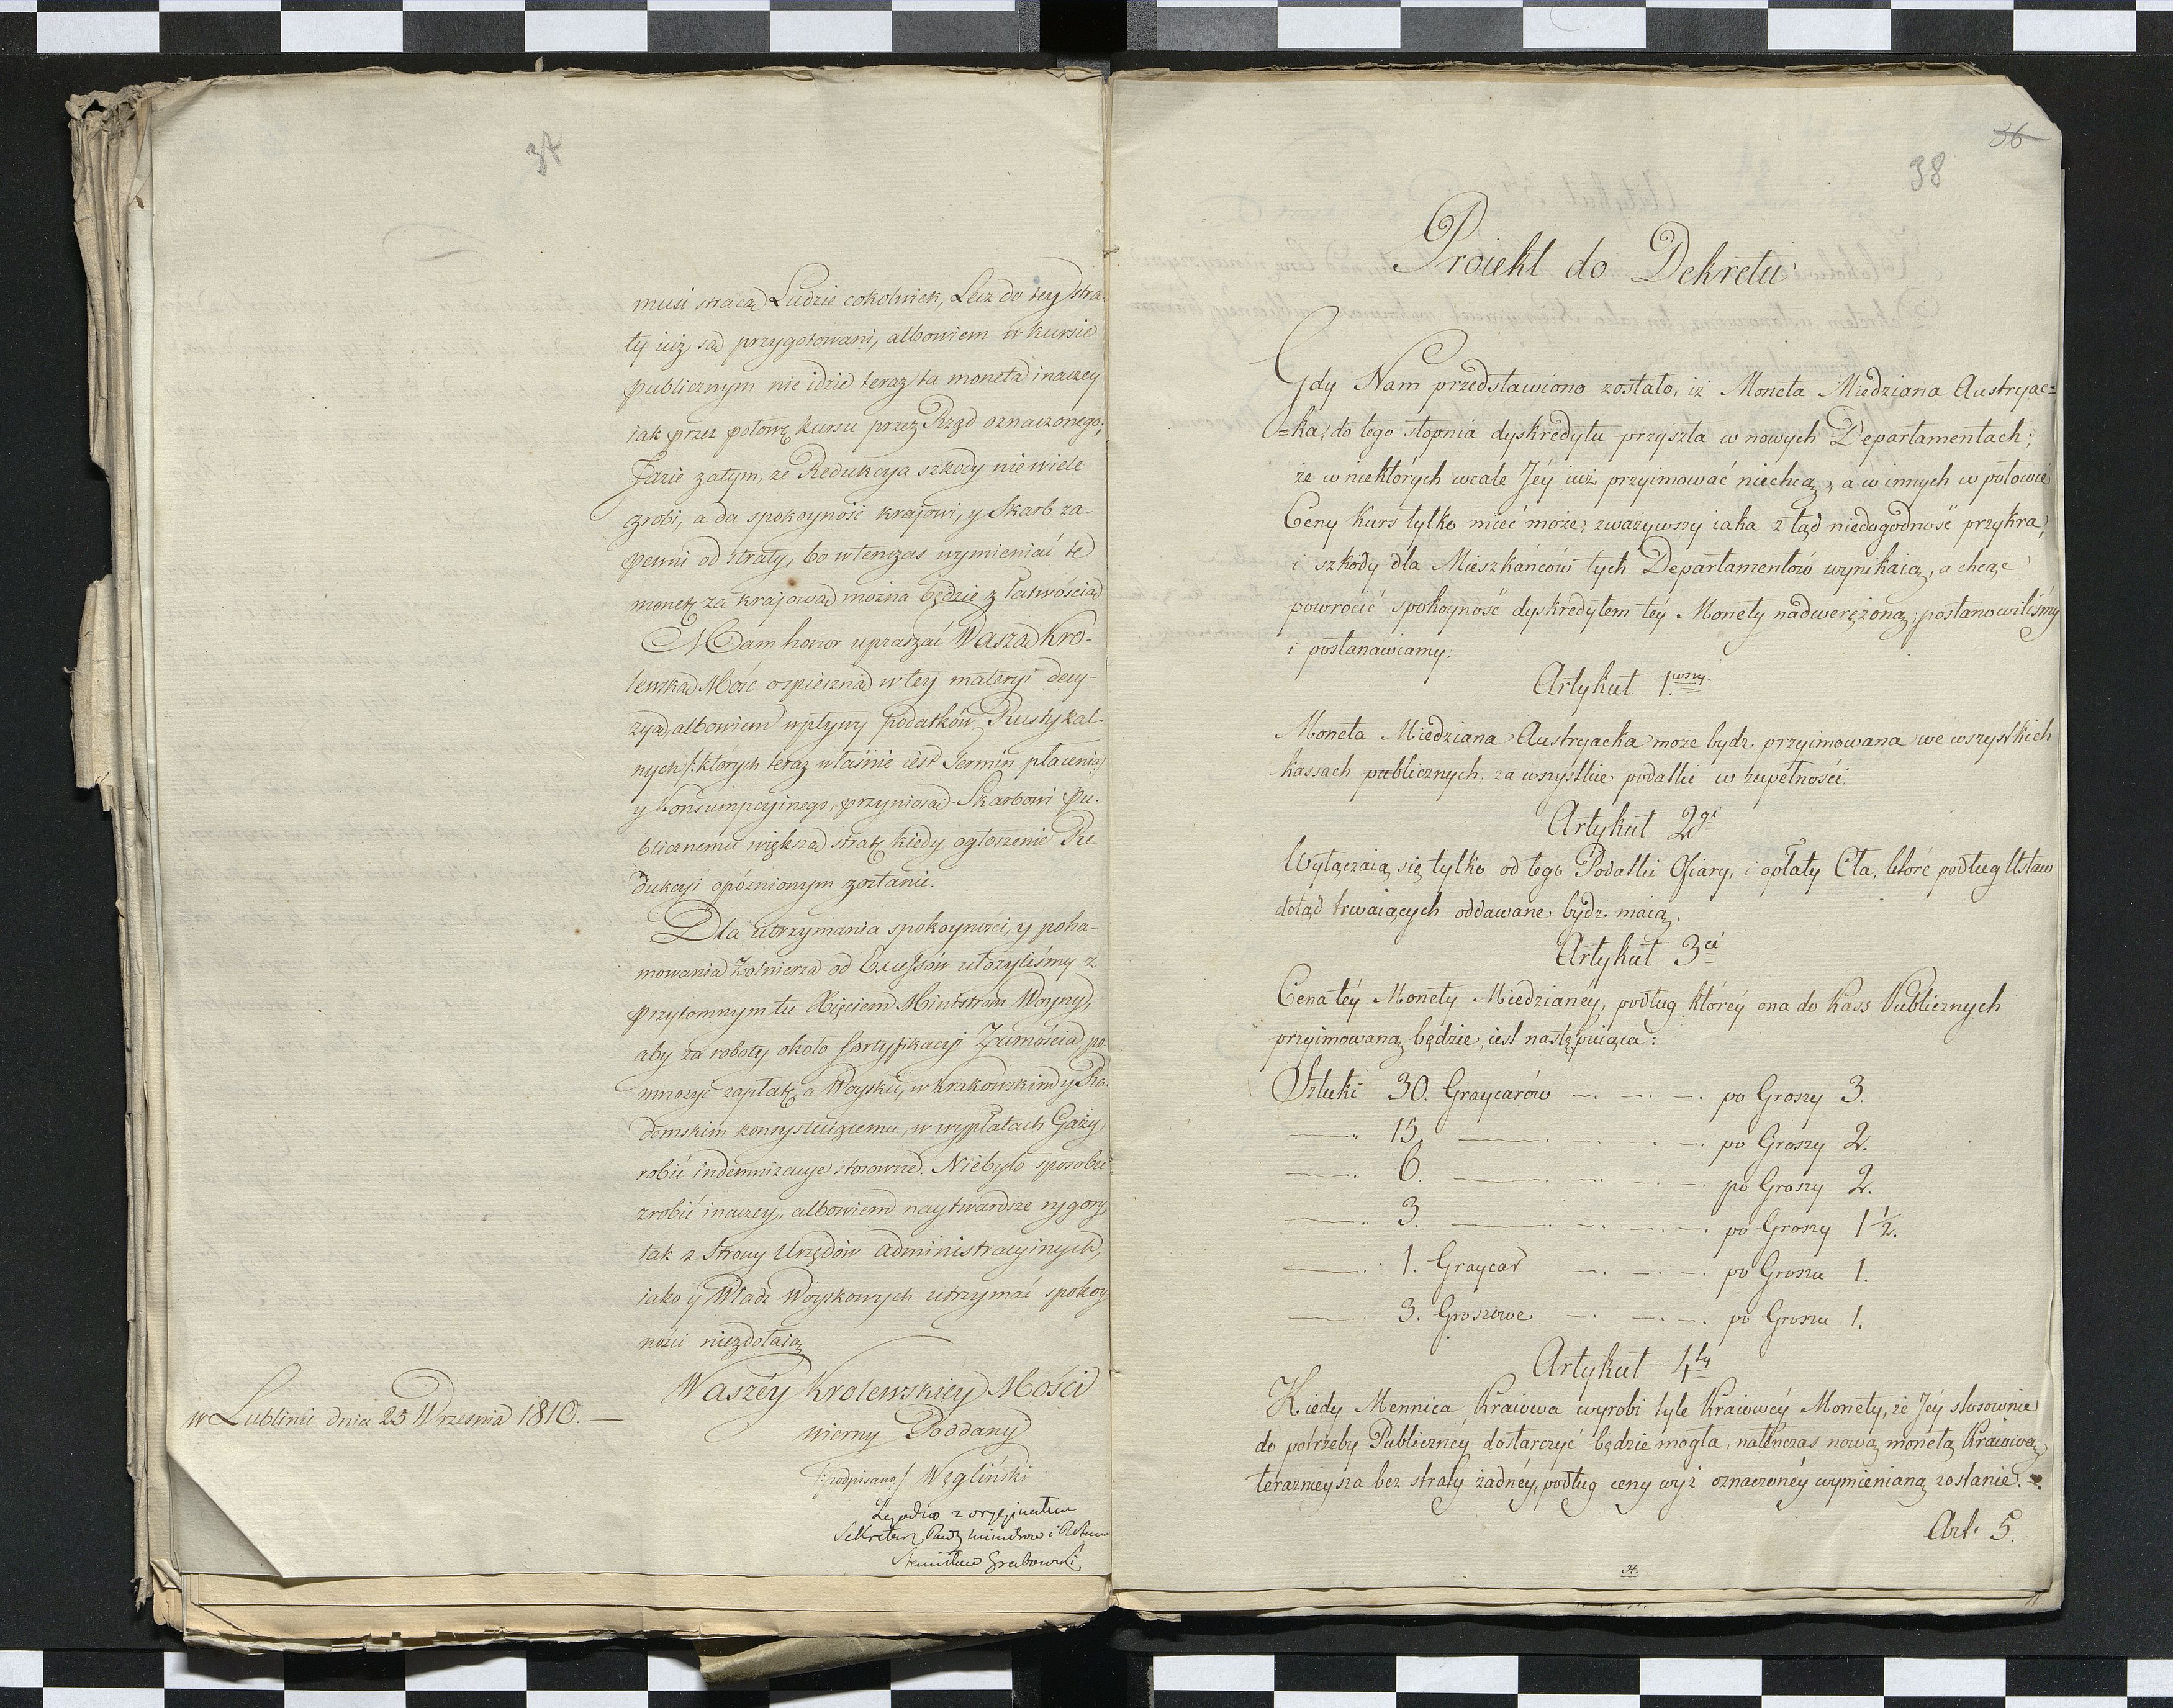 37
musi stracą Ludzie cokolwiek, Lecz do tey stra-
ty iuż są przygotowani, albowiem w kursie
publicznym nie idzie teraz ta moneta inaczey
iak przez połowę kursu przez Rząd oznaczonego;
Idzie zatym, że Redukcya szkody niewiele
zrobi, a da spokoyność krajowi, y Skarb za-
pewni od straty, bo wtenczas wymieniać te
monetę za krajową można będzie z łatwością
Mam honor upraszać Waszą Kró-
lewską Mość o spieszną w tey materyi decy-
zyą, albowiem wpływy podatków Rustykal
nych /:ktorych teraz właśnie iest Termin płacenia/
y Konsumpcyinego, przyniosą Skarbowi Pu-
blicznemu większą stratę kiedy ogłoszenie Re
dukcyi opóźnionym zostanie.
Dla utrzymania spokoyności, y poha-
mowania Żołnierza od Excessów ułożyliśmy z
przytomnym tu Xięciem Ministrem Woyny,
aby za roboty około fortyfikacyi Zamościa po-
mnożyć zapłatę, a Woysku, w Krakowskim y Ra-
domskim konsystuiącemu, w wypłatach Gaży
robić indemnizacye stosowne. Niebyło sposobu
zrobić inaczey, albowiem naytwardsze rygory,
tak z Strony Urzędów administracyinych,
iako y Władz Woyskowych utrzymać spokoy-
ności niezdołaią
Waszéy Krolewskiey Mości
wierny Poddany
/:podpisano:/ Węgliński
w Lublinie dnia 23 Września 1810. —
Zgodno z oryginałem
Sekretarz Rady Ministrów i
Stanisław Grabowski
36
38
Proiekt do Dekretu
Gdy Nam przedstawiono zostało, iż Moneta Miedziana Austryac=
=ka, do tego stopnia dyskredytu przyszła w nowych Departamentach;
że w niektórych wcale Jéy iuż przyimować niechcą, a w innych w połowie
Ceny kurs tylko mieć może, zważywszy iaka z tąd niedogodność przykra,
i szkody dla Mieszkańców tych Departamentów wynikaią, a chcąc
powrócić spokoyność dyskredytem téy Monety nadwerężoną; postanowiliśmy
i postanawiamy.
Artykuł 1.wszy.
Moneta Miedziana Austryacka może bydź przyimowana we wszystkich
kassach publicznych, za wszystkie podatki w zupełności.
Artykuł 2gi
Wyłączaią się tylko od tego Podatki Ofiary, i opłaty Cła, które podług Ustaw
dotąd trwaiących oddawane bydź maią.
Artykuł 3ci
Cena téy Monéty Miedzianéy, podług któréy ona do Kass Publicznych
przyimowaną będzie, iest następuiąca:
Sztuki 30. Graycarów —. —. —. po Groszy 3.
—. 15. —. —. —. —. po Groszy 2.
—. 6. —. —. —. —. po Groszy 2.
—. 3. —. —. —. —. po Groszy 1 1/2.
—. 1. Graycar —. —. —. po Groszu 1.
—. 3. Groszowe —. —. —. po Groszu 1.
Artykuł 4ty
Kiedy Mennica Kraiowa wyrobi tyle Kraiowéy Monéty, że Jéy stosownie
do potrzeby Publicznéy dostarczyć będzie mogła, natenczas nową monetą Kraiową,
teraznieysza bez straty żadnéy, podług ceny wyż oznaczonéy wymienianą zostanie.
Art. 5.